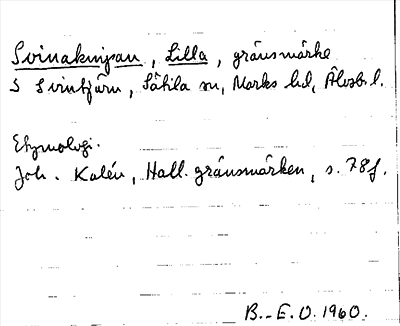 Svinaknipan, Lilla, gränsmärke
S Svintjärn, Sätila sn, Marks hd, Älvsb. l.
Etymologi.
Joh. Kalén, Hall. gränsmärken, s. 78f.
B.-E.O. 1960.